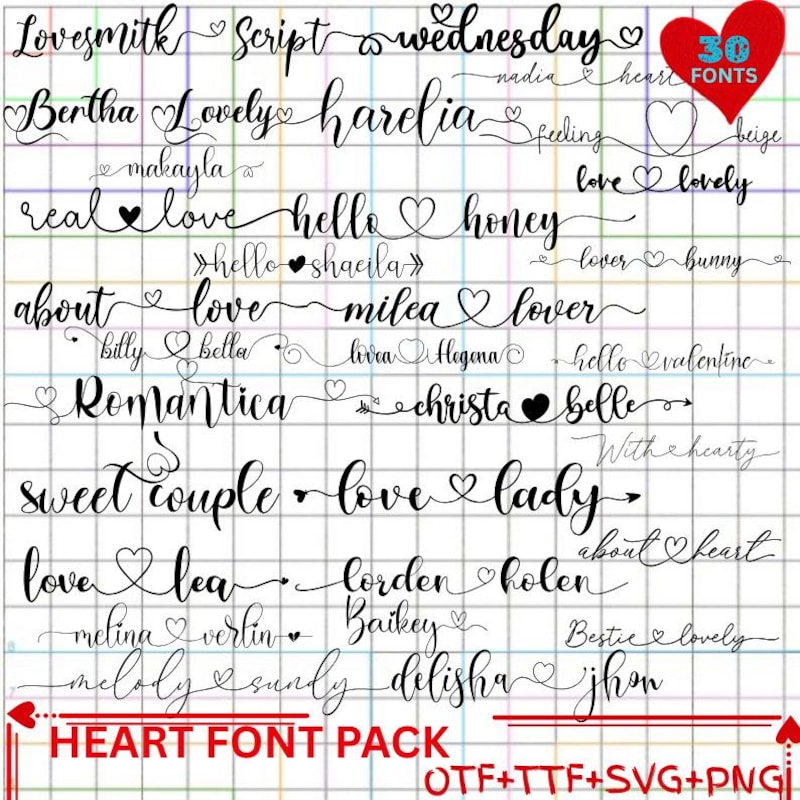 Lovesmith Script wednesday
30
FONTS
nadia heart
Bertha Lovely harelia
feeling beige
makayla
love lovely
real love hello honey
hello shaeila
lover bunny
about love milea lover
billy bella lovea Hegena hello valentine
Romantica christa belle
With hearty
sweet couple love lady
about heart
love lea lorden holen
melina verlin Baikey Bestie lovely
melody sundy delisha jhon
HEART FONT PACK
OTF+TTF+SVG+PNG